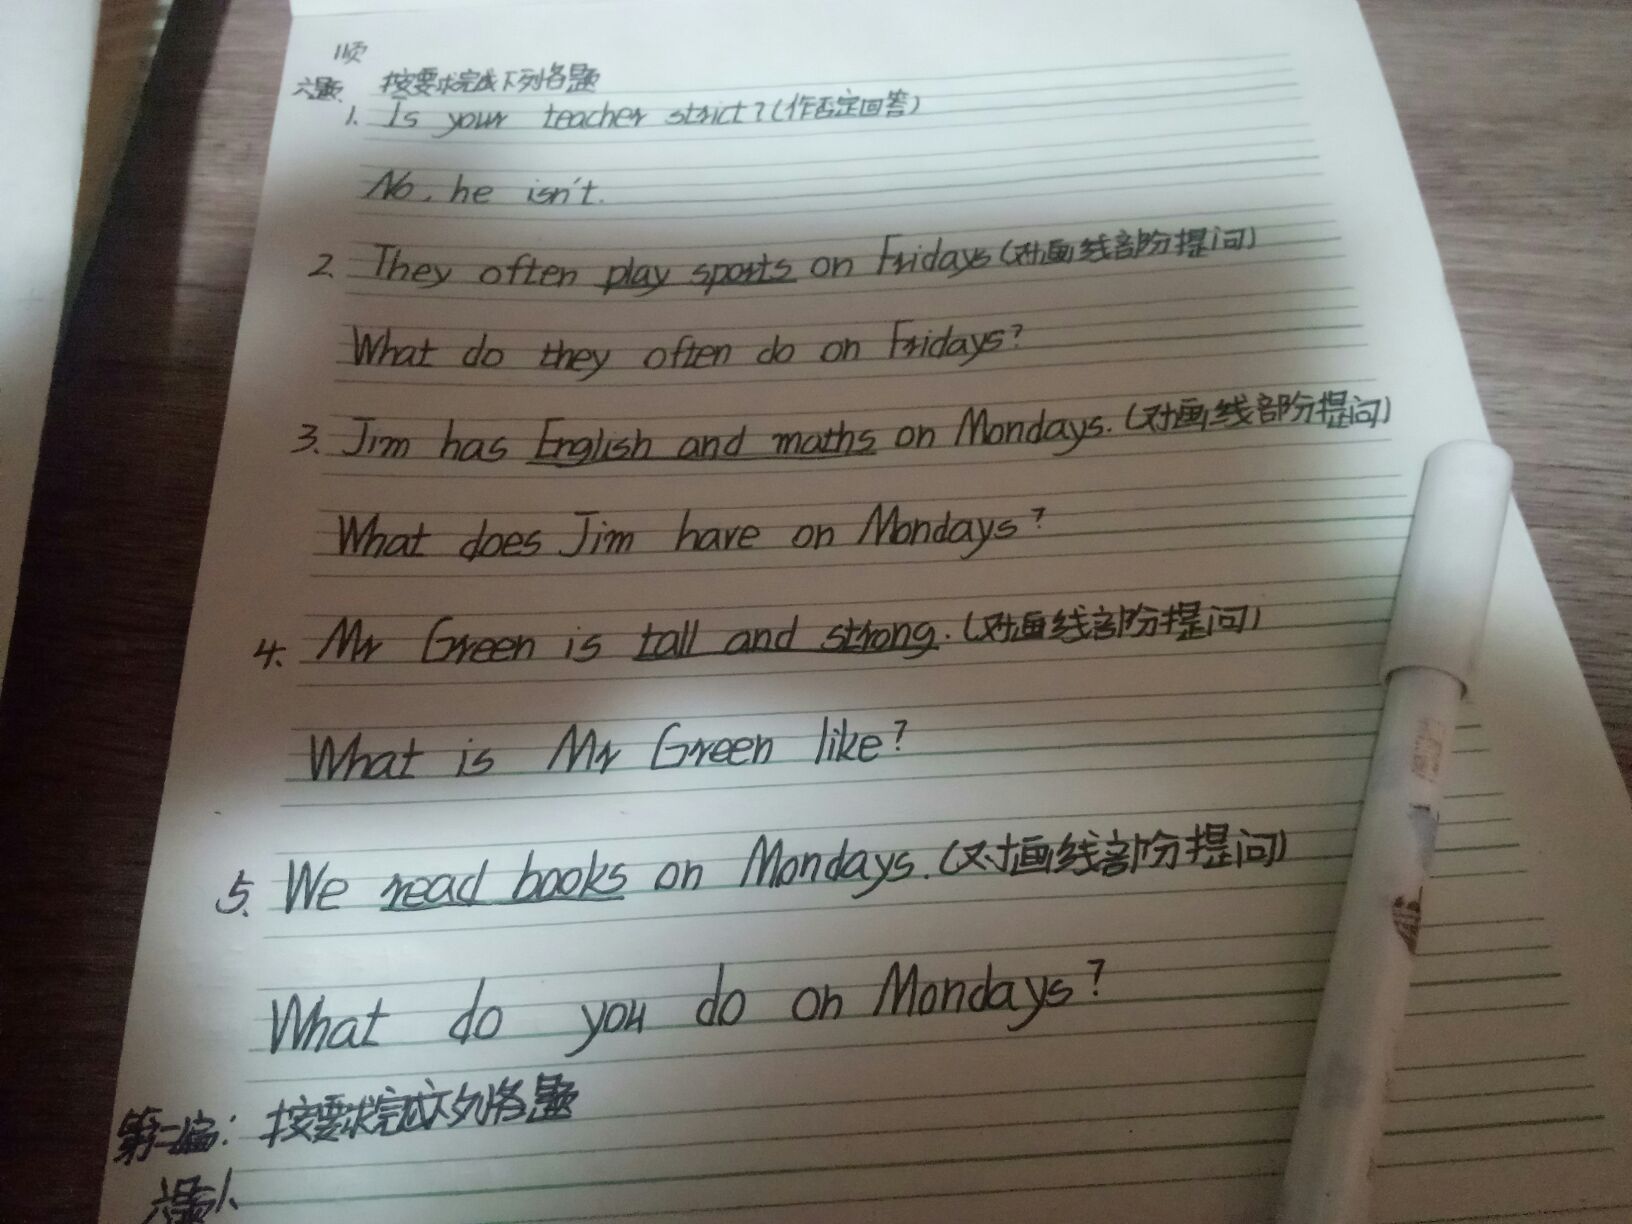 11页
六题、按要求完成下列各题
1. Is your teacher strict?(作否定回答)
No, he isn't.
2. They often play sports on Fridays(对画线部份提问)
What do they often do on Fridays?
3. Jim has English and maths on Mondays.(对画线部份提问)
What does Jim have on Mondays?
4. Mr Green is tall and strong.(对画线部份提问)
What is Mr Green like?
5. We read books on Mondays.(对画线部份提问)
What do you do on Mondays?
第二遍: 按要求完成下列各题
六题1、